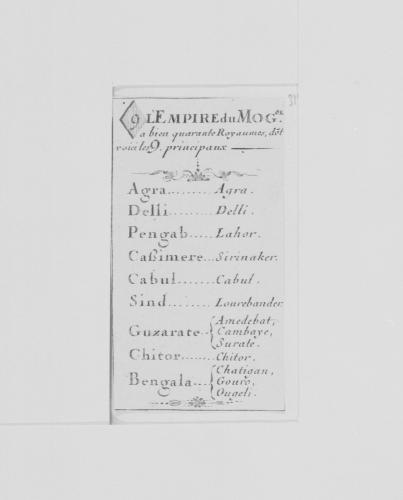 9 L'EMPIRE du MOG.ol
a bien quarante Royaumes, dōt
voici les 9. principaux
Agra........Agra.
Delli.........Delli.
Pengab.....Lahor.
Caßimere...Sirinaker.
Cabul.......Cabul.
Sind........Lourebander.
Guzarate..{Amedebat,
Cambaye,
Surate.
Chitor......Chitor.
Bengala....{Chatigan,
Gouro,
Ougeli.